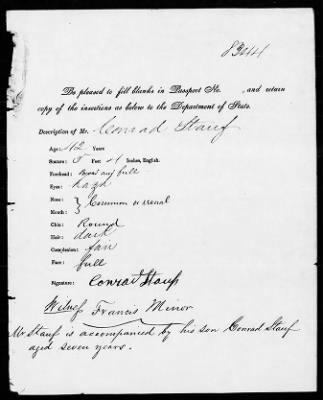 8344
Be pleased to fill blanks in Passport No. , and return
copy of the insertions as below to the Department of State.
Description of Mr. Conrad Stauf
Age: 42 Years
Stature: 5 Feet 4 Inches, English.
Forehead: full
Eyes: hazel
Nose:
Mouth: } Common
Chin: Round
Hair: dark
Complexion: fair
Face: full
Signature: Conrad Stauf
Witness Francis Minor
Mr. Stauf is accompanied by his son Conrad Stauf
aged seven years.